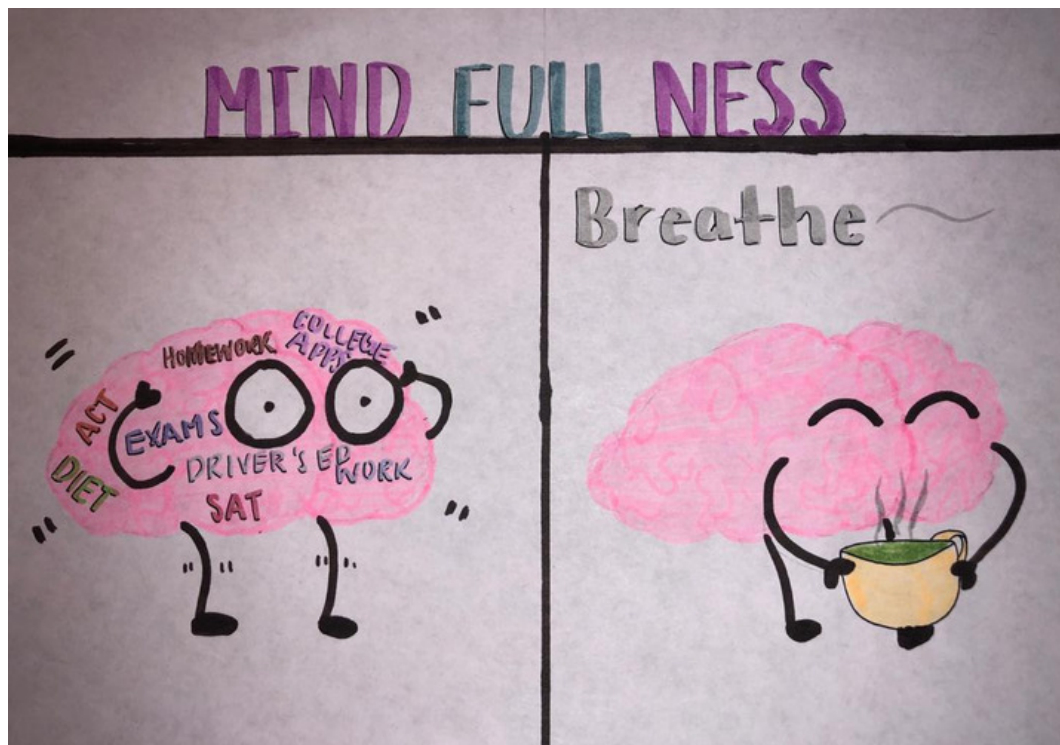 MIND FULL NESS
HOMEWORK
COLLEGE
APPS
ACT
EXAMS
DIET
DRIVER'S ED
WORK
SAT
Breathe